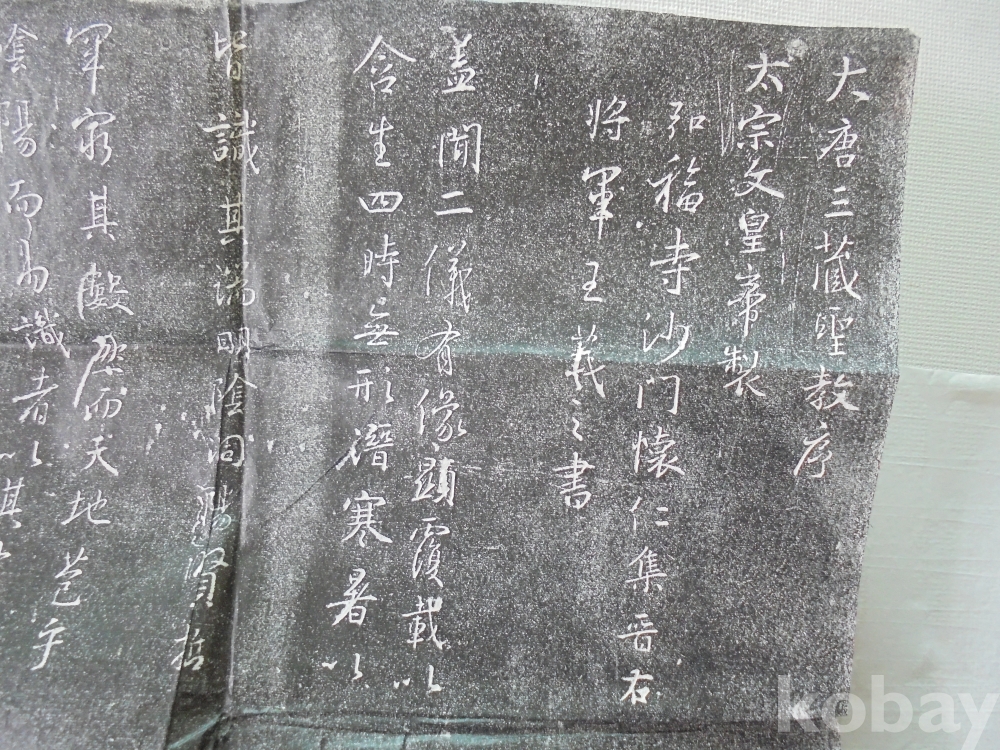 大唐三藏聖教序
太宗文皇帝製
弘福寺沙門懷仁集晉右
將軍王羲之書
蓋聞二儀有像顯覆載以
含生四時無形潛寒暑以
皆識其端明陰洞陽賢哲
罕窮其數然而天地苞乎
陰陽而易識者以其
kobay